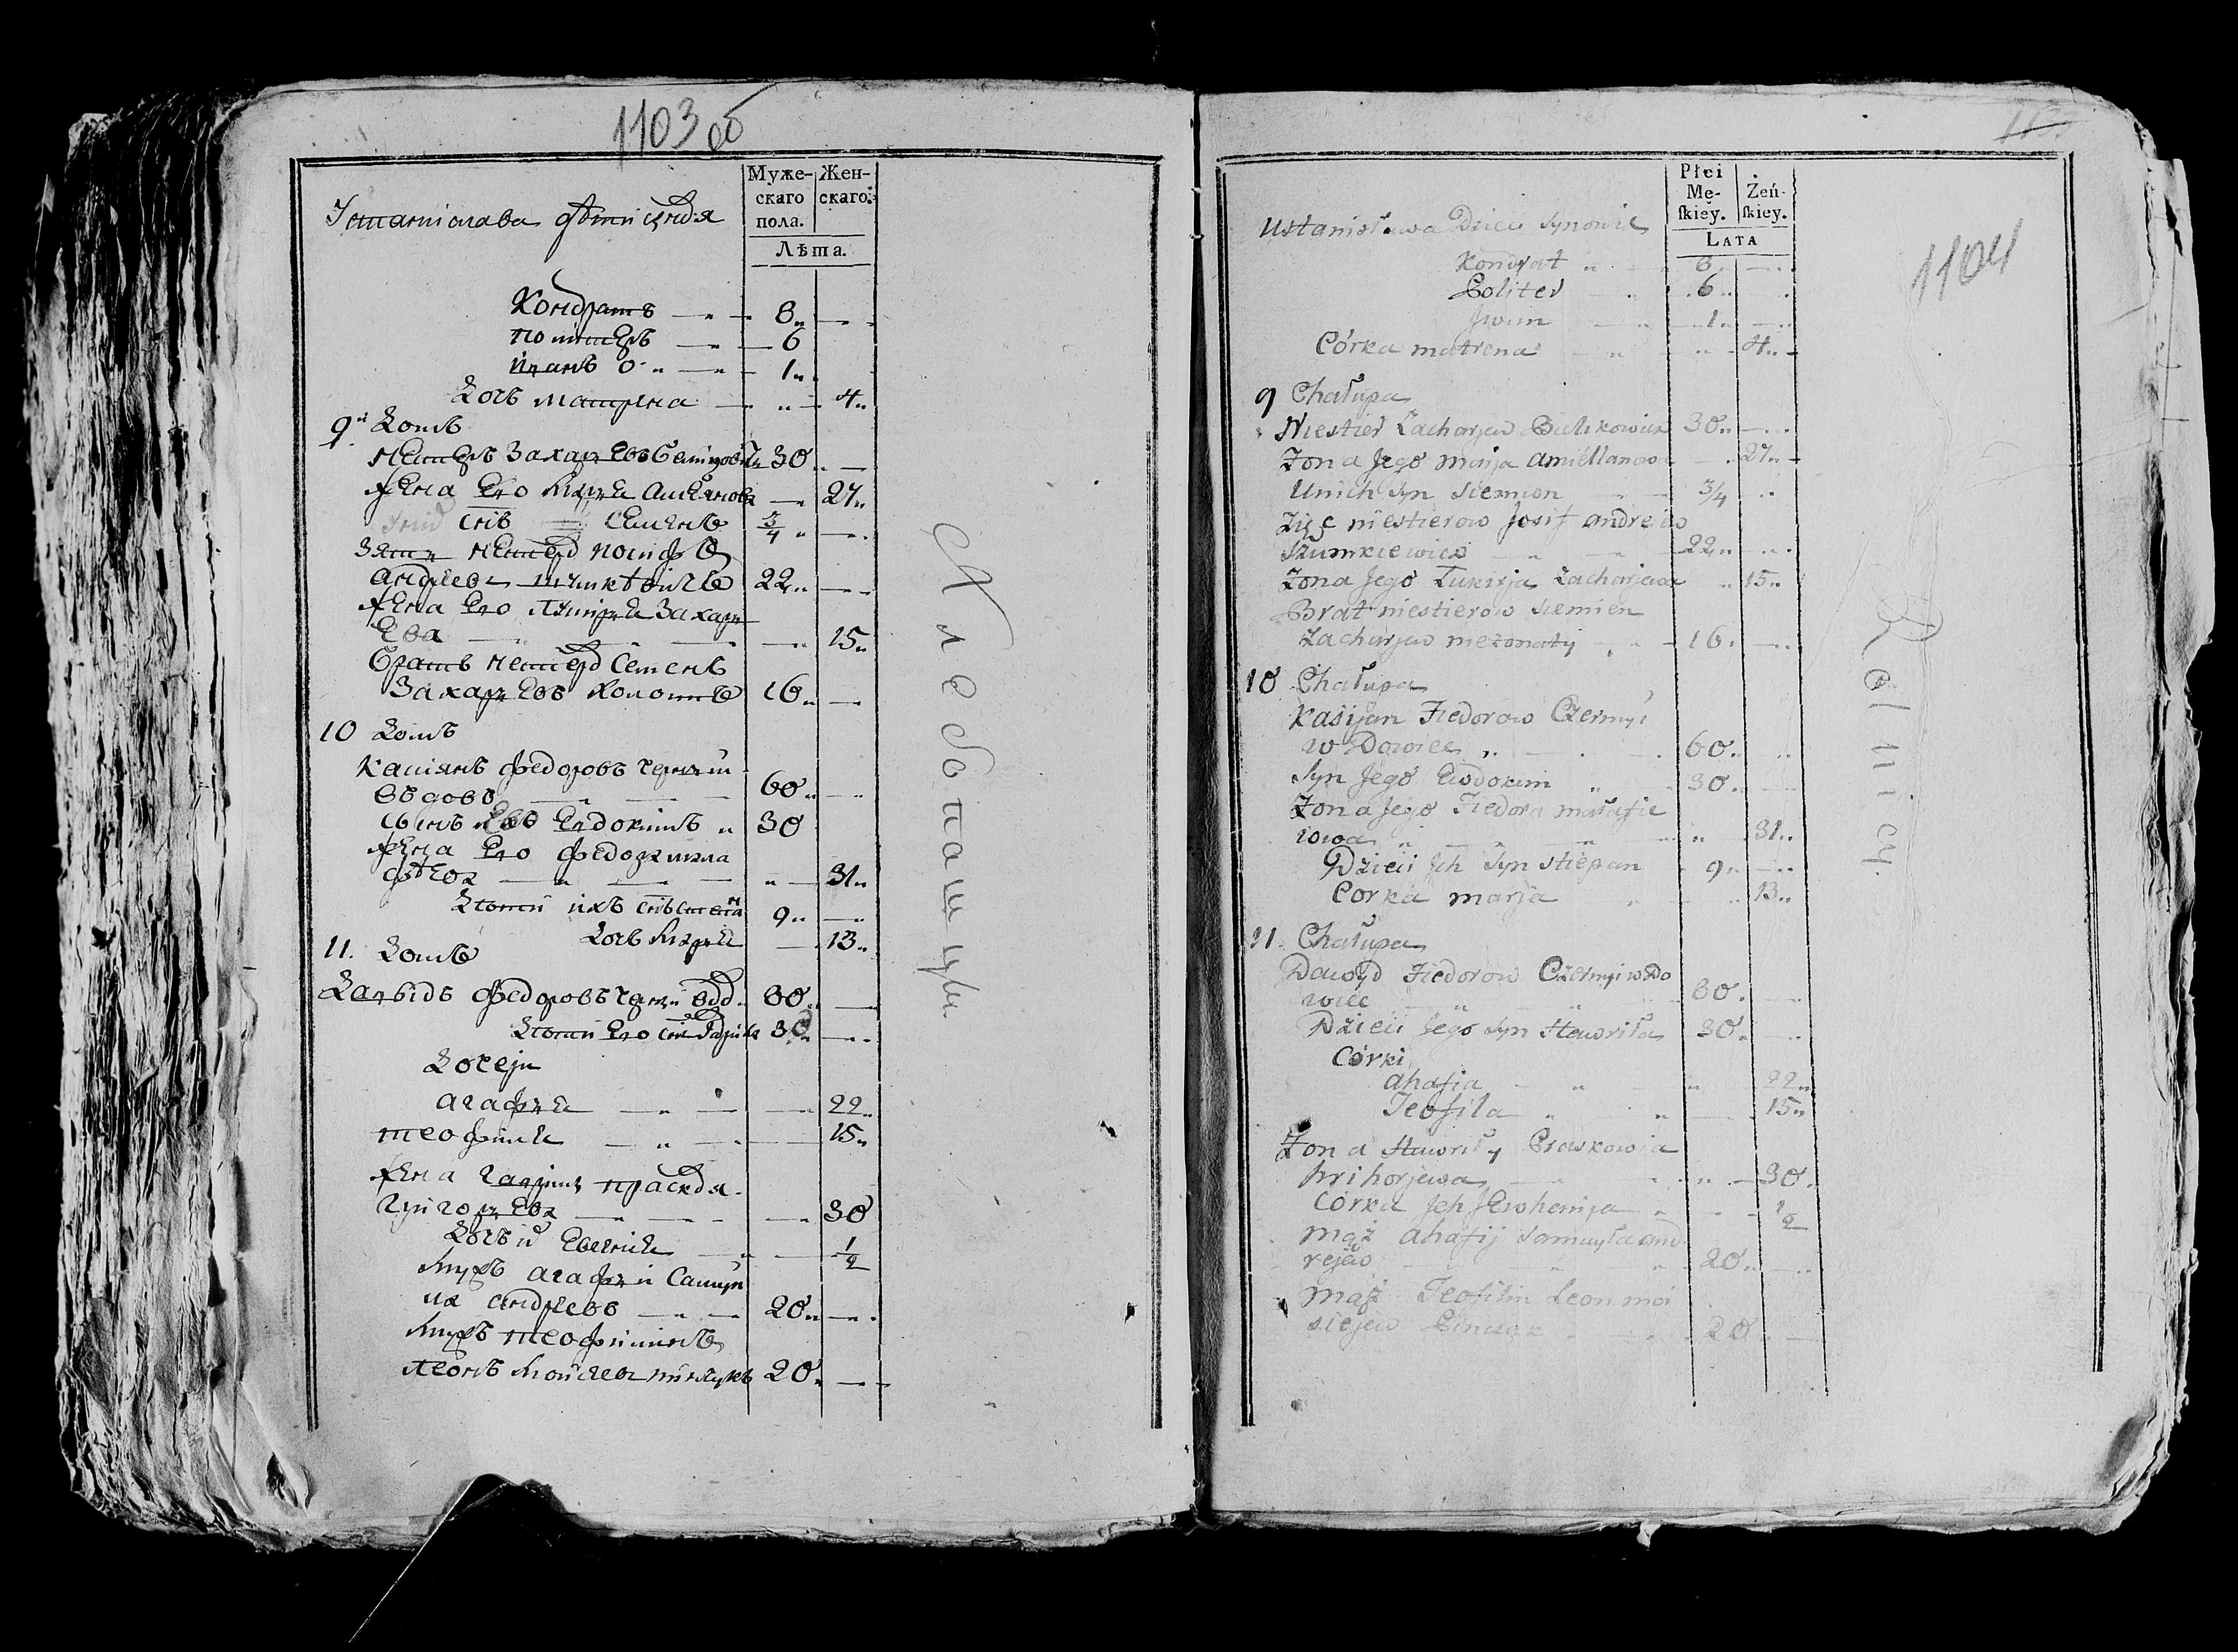 1103 об
Муже-
скаго
пола.
Жен-
скаго.
Лѣта.
Устанислава дѣти
Кондратъ 8
6
Иванъ 1
Дочь Матрена 4
9й Домъ
Нестеръ Захарьевъ 30
Жена Его Марья 27
Снъ Семенъ 3/4
Зять Нестера Іосифъ
Андреевъ 22
Жена Его Захарь
Ева 15
Братъ Нестера Семенъ
Захарьевъ Холостъ 16
10 Домъ
Касіянъ Федоровъ Черный
Вдовъ 60
Сынъ Его Евдокимъ 30
Жена Его Федора Мала
фѣева 31
Дѣти ихъ снъ Степа 9
Дочь Марья 13
11. Домъ
Давыдъ Федоровъ 80
Дѣти Его снъ Гаврила 30
Дочери
Агафья 22
Теофила 15
Жена Гаврилы Прасковья
Григорьева 30
Дочь 1/2
Мужъ Агафьи Самуи
ла Андреевъ 20
Мужъ Теофилинъ
Леонъ Моисеевъ 20
Хлебопашцы
Płci
Mę-
ſkiey.
Żeń-
ſkiey.
LATA
1104
Ustanisława Dzieci Synowie
Kondrat 8
6
Jwan 1
Córka matrena 4
9 Chałupa
Niestier Zacharjew 30
Zona Jego marja 27
Syn Siemion 3/4
Zięć niestierow Josif andrejew
Szumkiewicz 22
Zona Jego Łukirja Zacharjewa 15
Brat niestierow Siemien
Zacharjew niezonaty 16
10 Chałupa
Kasijan Fiedorow Czernyi
wdowiec 60
Syn Jego Ewdokim 30
Zona Jego Fiedora małafie
iowa 31
Dzieci Jch Syn Stiepan 9
Corka marja 13
11 Chałupa
Dawyd Fiedorow Czernyi wdo
wiec 80
Dzieci Jego Syn Hawriła 30
Córki
ahafia 22
Teofila 15
Zona Hawriły Praskowia
hrihorjewa 30
Córka Jch Jewhenija 1/2
mąż ahafij Samuyła and
rejew 20
mąż Teofilin Leon moi
siejew 20
Rolnicy